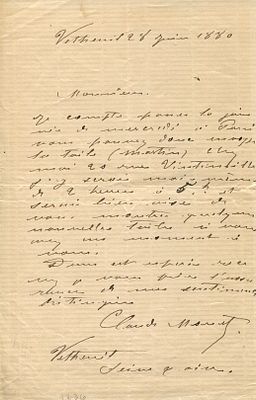 Vetheuil 28 juin 1880
Monsieur.
Je compte passer la jour
née de mercredi à Paris
vous pouvez donc
la toile (Matin) chez
moi 20 rue Vintimille
j'y serai moi même
de 2 heures à 5 h et
serais bien aise de
vous montrer quelques
nouvelles toiles si vous
avez un moment à
vous.
Dans cet espoir rece
vez je vous prie l'assu
rance de mes sentiments
distingués
Claude Monet
Vetheuil
Seine & oise.